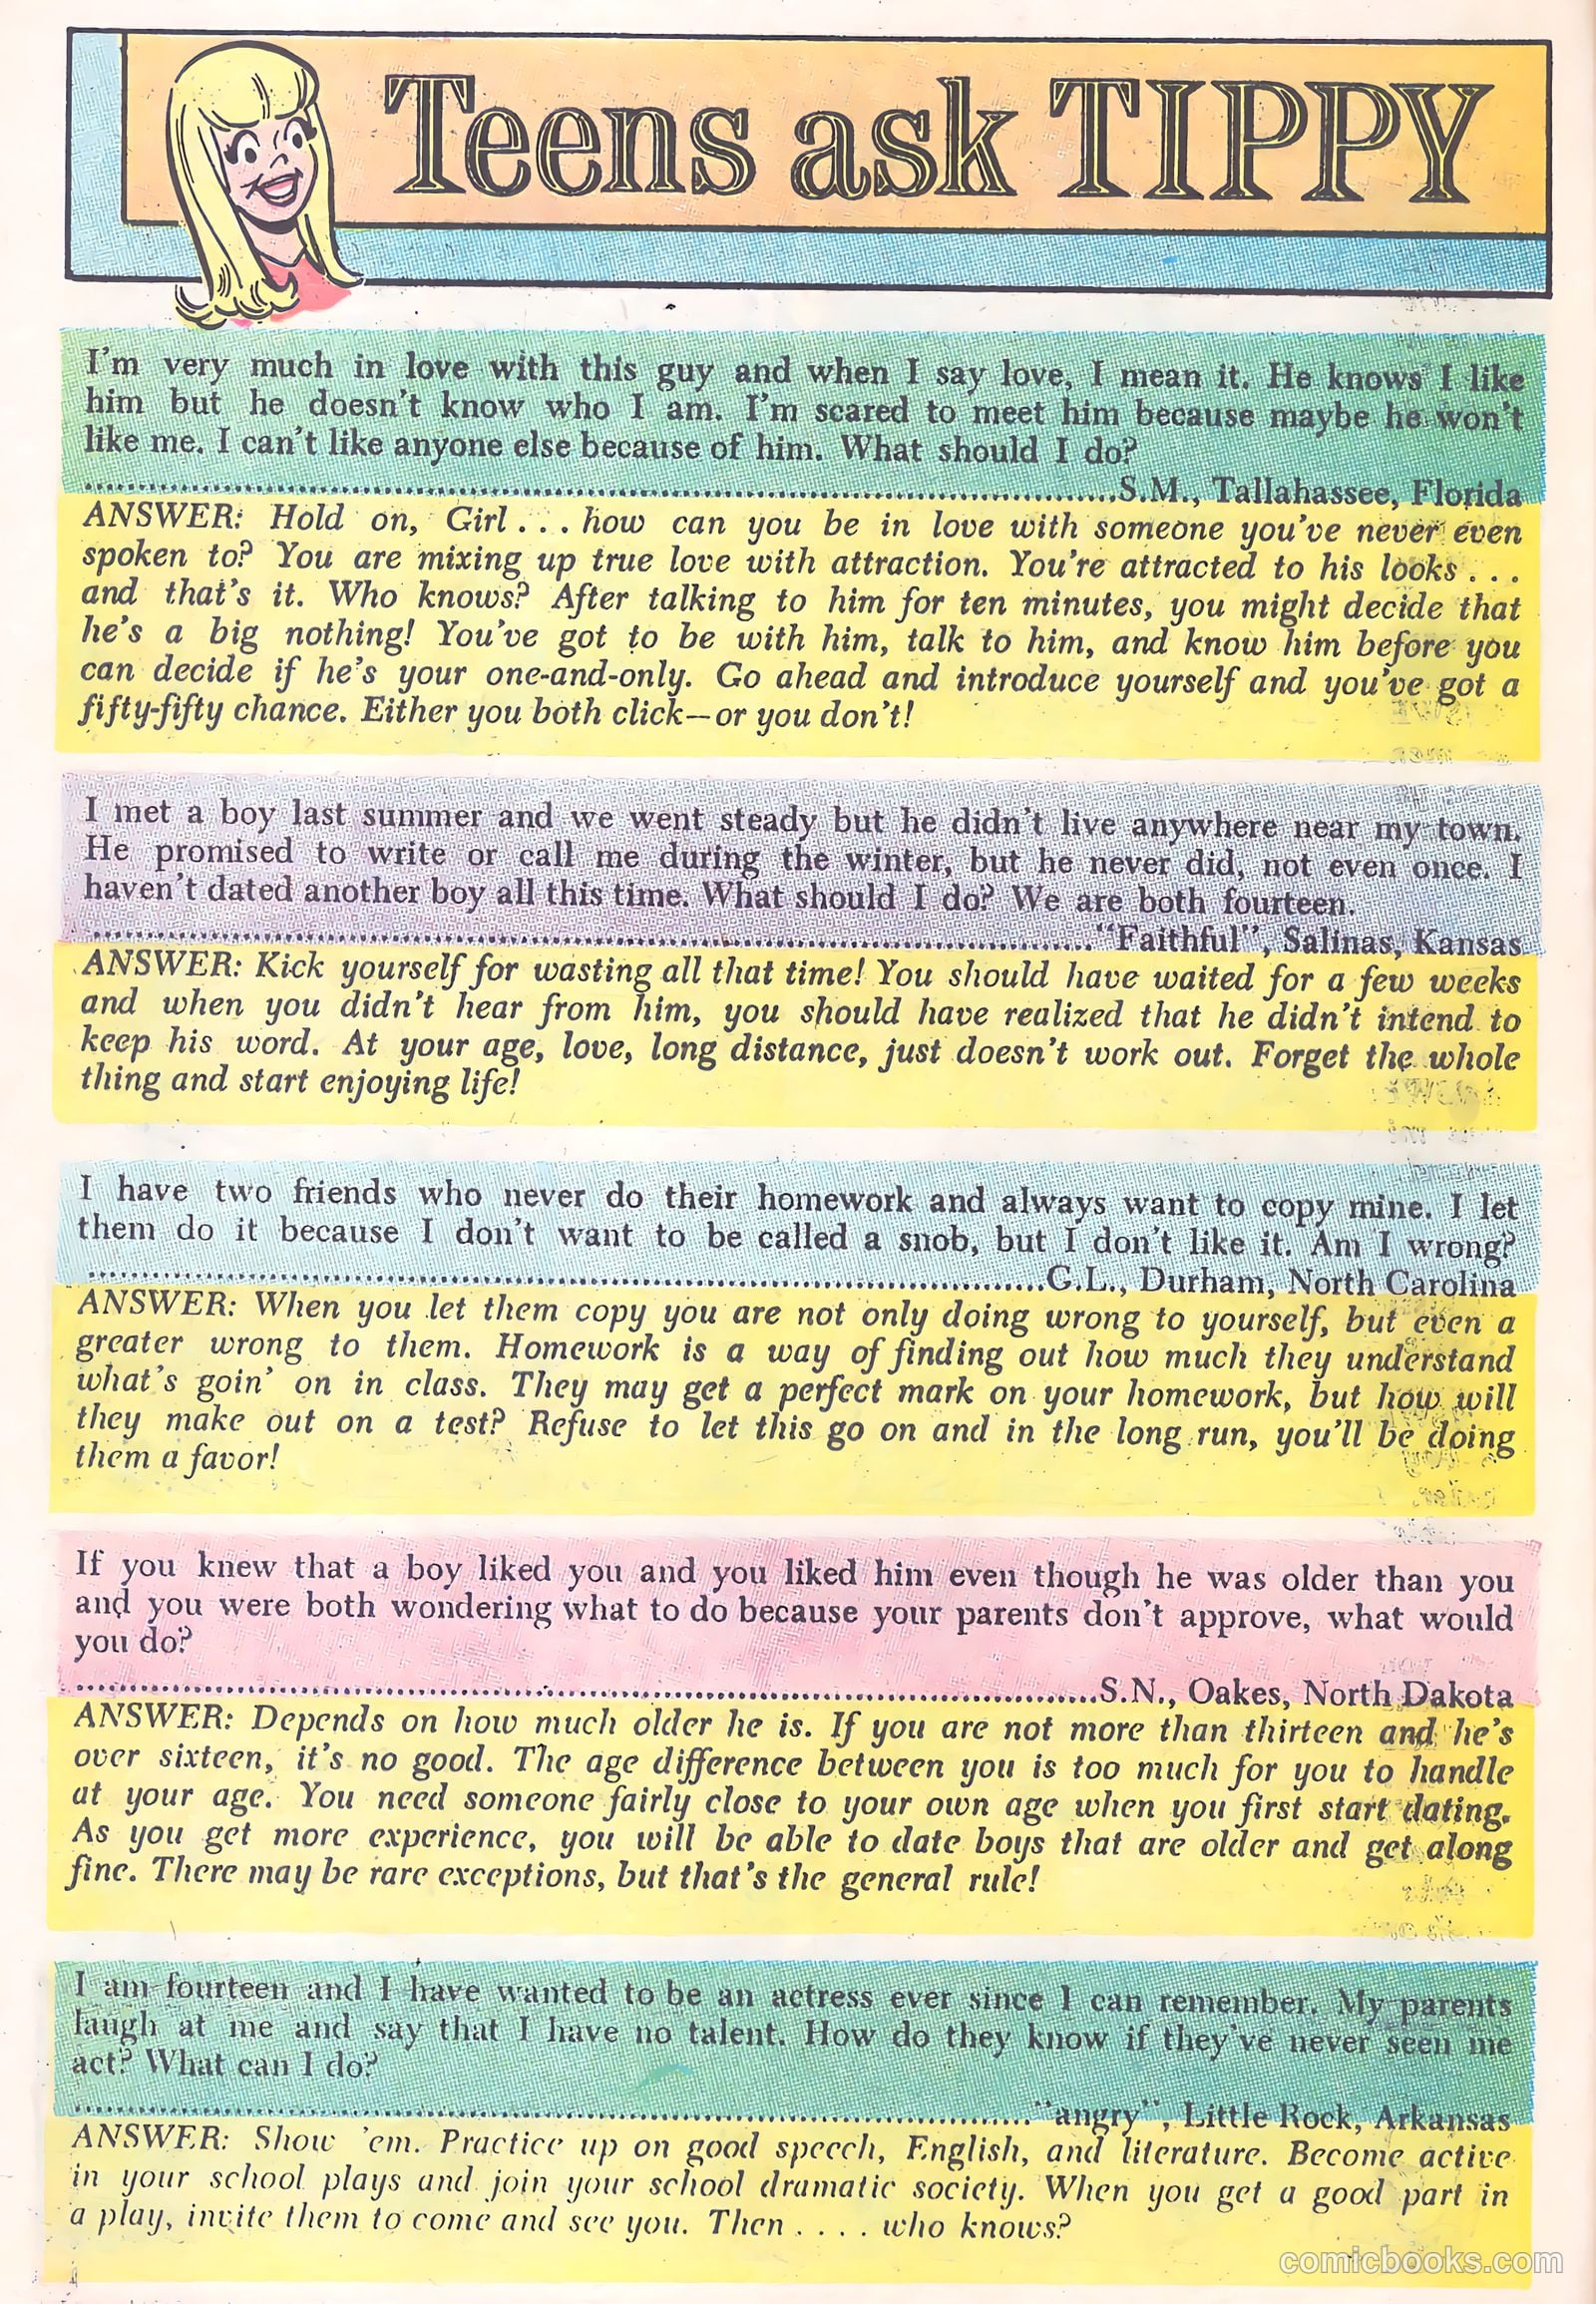 Teens ask TIPPY
I'm very much in love with this guy and when I say love, I mean it. He knows I like
him but he doesn't know who I am. I'm scared to meet him because maybe he won't
like me. I can't like anyone else because of him. What should I do?
........................................................................S.M., Tallahassee, Florida
ANSWER: Hold on, Girl . . . how can you be in love with someone you've never even
spoken to? You are mixing up true love with attraction. You're attracted to his looks . . .
and that's it. Who knows? After talking to him for ten minutes, you might decide that
he's a big nothing! You've got to be with him, talk to him, and know him before you
can decide if he's your one-and-only. Go ahead and introduce yourself and you've got a
fifty-fifty chance. Either you both click—or you don't!
I met a boy last summer and we went steady but he didn't live anywhere near my town.
He promised to write or call me during the winter, but he never did, not even once. I
haven't dated another boy all this time. What should I do? We are both fourteen.
........................................................................"Faithful", Salinas, Kansas
ANSWER: Kick yourself for wasting all that time! You should have waited for a few weeks
and when you didn't hear from him, you should have realized that he didn't intend to
keep his word. At your age, love, long distance, just doesn't work out. Forget the whole
thing and start enjoying life!
I have two friends who never do their homework and always want to copy mine. I let
them do it because I don't want to be called a snob, but I don't like it. Am I wrong?
........................................................................G.L., Durham, North Carolina
ANSWER: When you let them copy you are not only doing wrong to yourself, but even a
greater wrong to them. Homework is a way of finding out how much they understand
what's goin' on in class. They may get a perfect mark on your homework, but how will
they make out on a test? Refuse to let this go on and in the long run, you'll be doing
them a favor!
If you knew that a boy liked you and you liked him even though he was older than you
and you were both wondering what to do because your parents don't approve, what would
you do?
........................................................................S.N., Oakes, North Dakota
ANSWER: Depends on how much older he is. If you are not more than thirteen and he's
over sixteen, it's no good. The age difference between you is too much for you to handle
at your age. You need someone fairly close to your own age when you first start dating.
As you get more experience, you will be able to date boys that are older and get along
fine. There may be rare exceptions, but that's the general rule!
I am fourteen and I have wanted to be an actress ever since I can remember. My parents
laugh at me and say that I have no talent. How do they know if they've never seen me
act? What can I do?
........................................................................"angry", Little Rock, Arkansas
ANSWER: Show 'em. Practice up on good speech, English, and literature. Become active
in your school plays and join your school dramatic society. When you get a good part in
a play, invite them to come and see you. Then . . . . who knows?
comicbooks.com